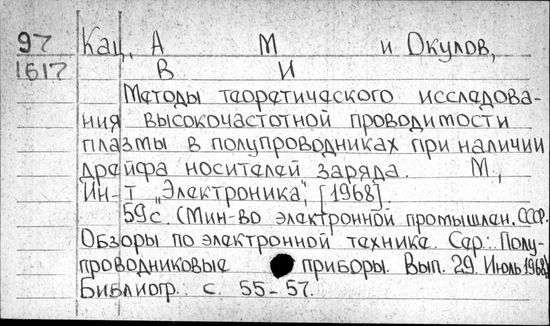 97 Кац, А М и Окулов,
1617 В И
Методы теоретического исследова-
ния высокочастотной проводимости
плазмы в полупроводниках при наличии
дрейфа носителей заряда. М.,
Ин-т „Электроника", [1968].
59 с. (Мин-во электронной промышлен. СССР.
Обзоры по электронной технике. Сер.: Полу-
проводниковые приборы. Вып. 29. Июль 1968)
Библиогр.: с. 55-57.